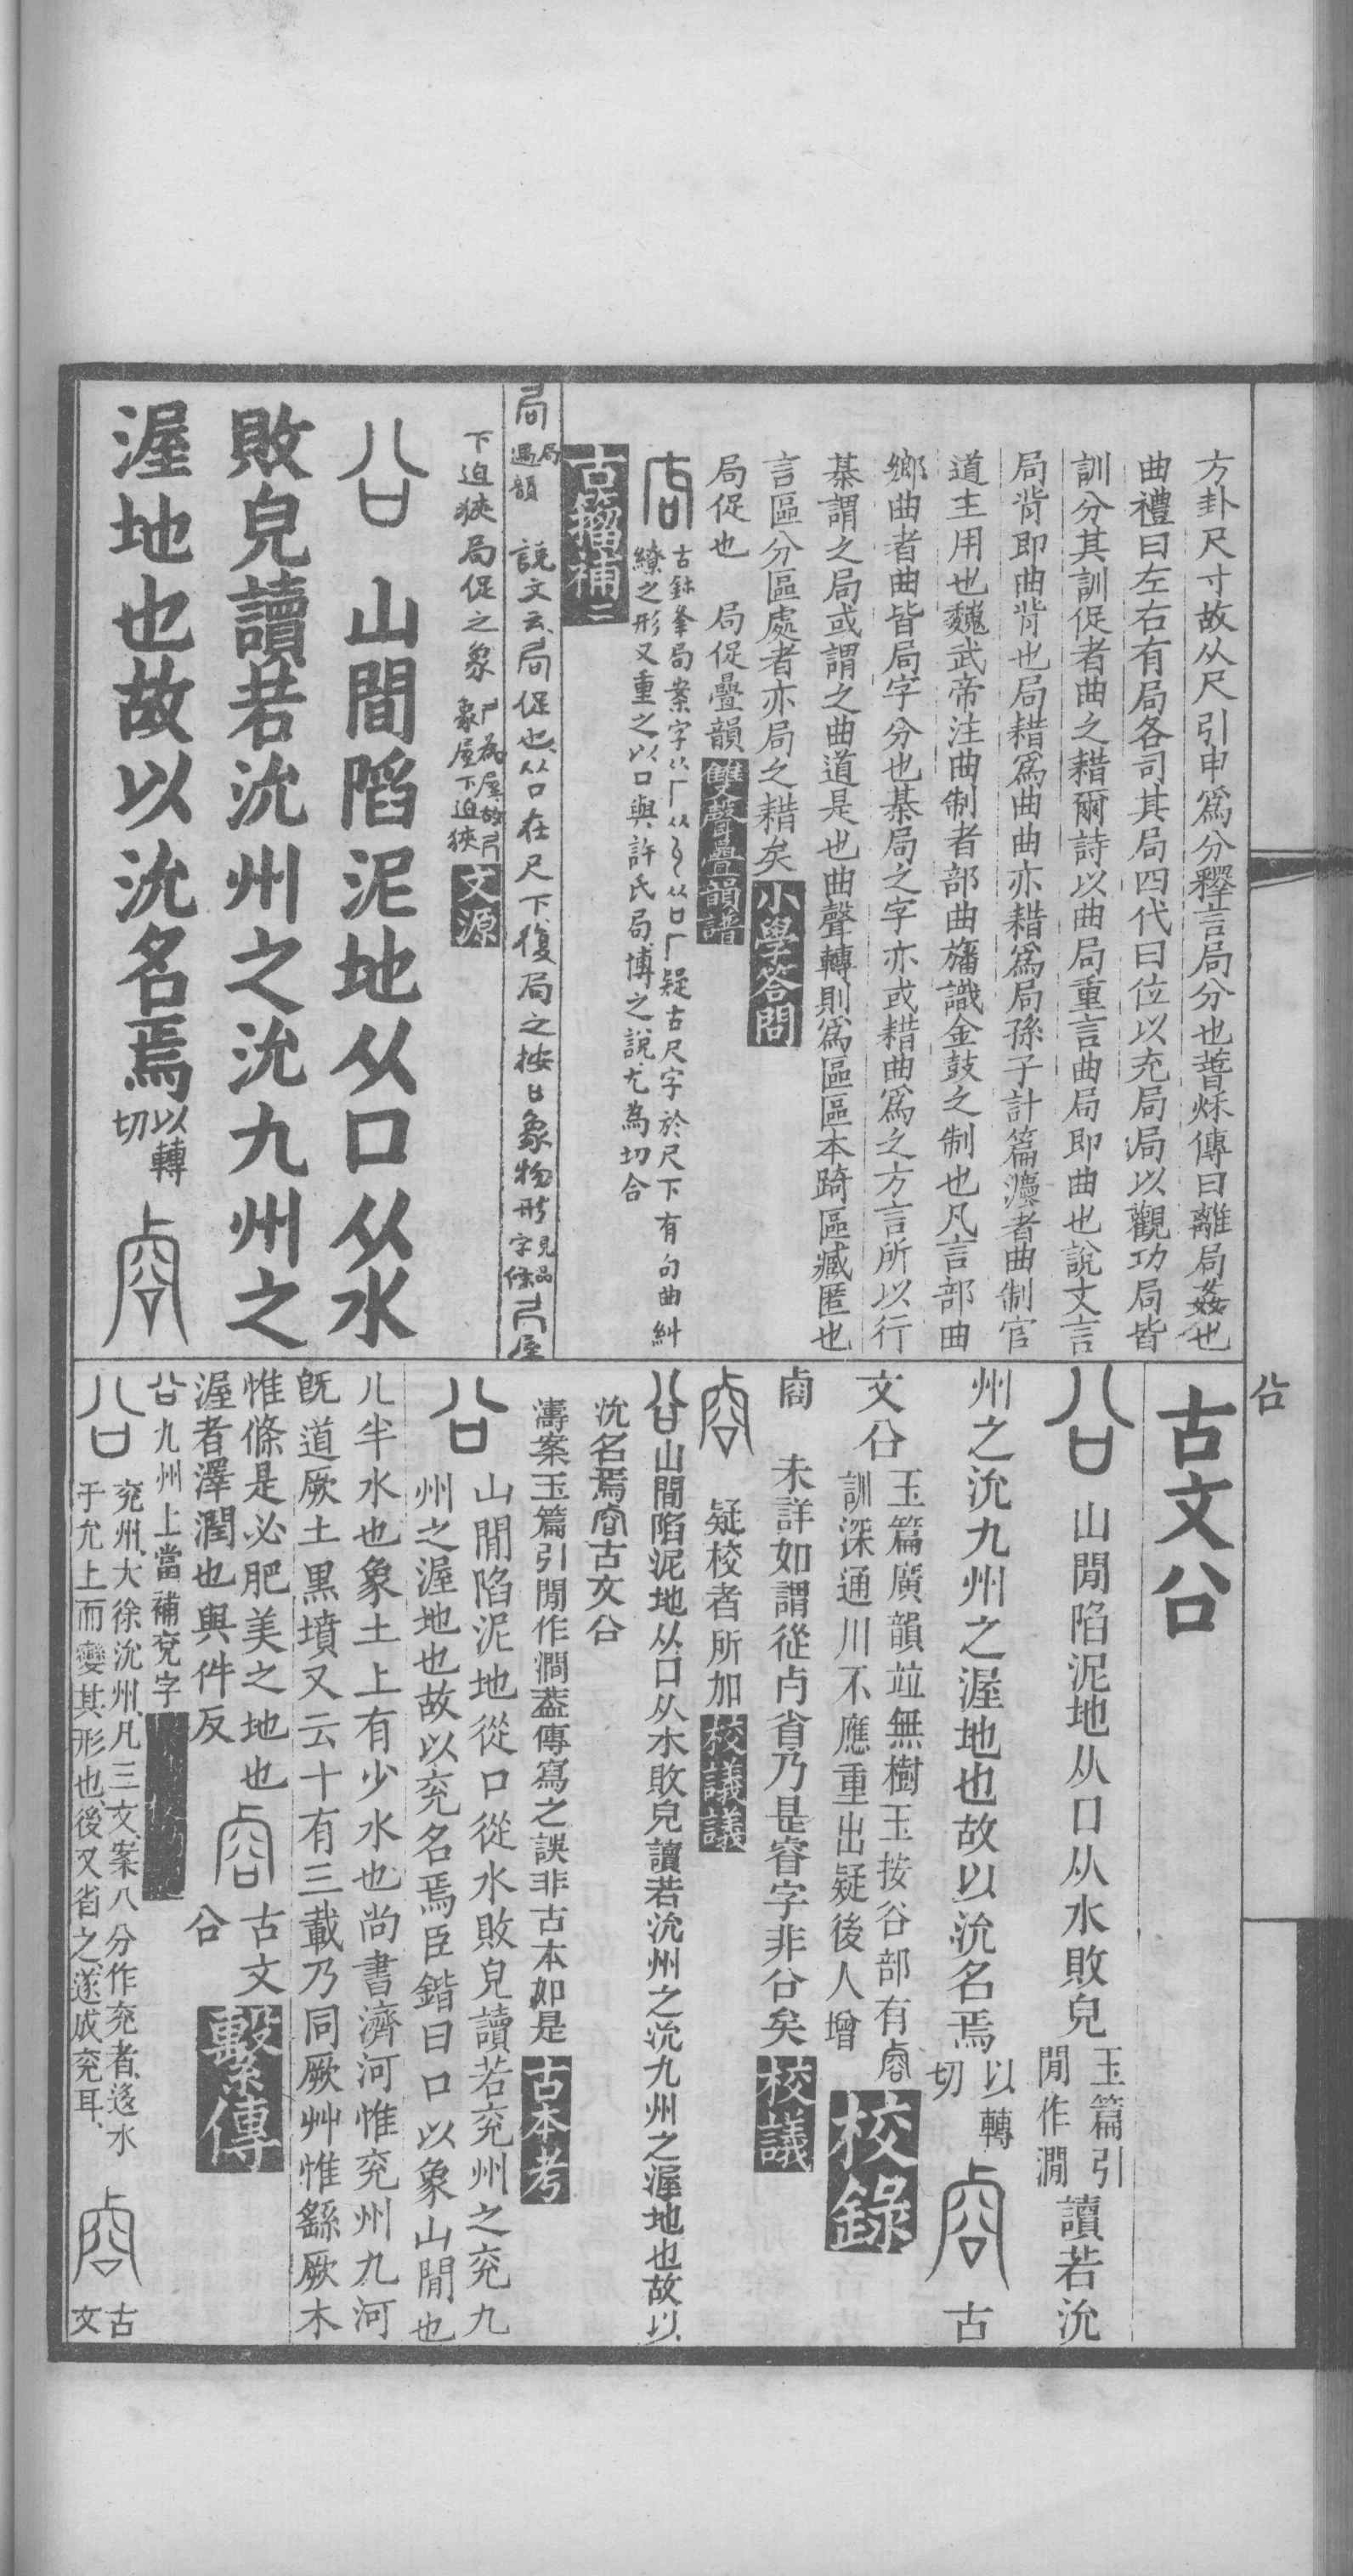 方卦尺寸故从尺引申爲分釋言局分也晉烁傳曰離局姦也
曲禮曰左右有局各司其局四代曰位以充局局以觀功局皆
訓分其訓促者曲之耤爾詩以曲局重言曲局即曲也說文言
局背即曲背也局耤爲曲曲亦耤爲局孫子計篇灋者曲制官
道主用也魏武帝注曲制者部曲旛識金鼓之制也凡言部曲
鄉曲者曲皆局字分也棊局之字亦或耤曲爲之方言所以行
棊謂之局或謂之曲道是也曲聲轉則爲區區本踦區臧匿也
言區分區處者亦局之耤矣小學答問
局促也 局促疊韻雙聲疊韻譜
古鉢夆局案字从厂从从口厂疑古尺字於尺下有句曲糾
繚之形又重之以口與許氏局博之說尤為切合
古籀補二
局 局遇韻 說文云局促也从口在尺下復局之按口象物形見品字條
下迫狹局促之象 象屋下迫狹文源
㕣 山間陷泥地从口从水
敗皃讀若沇州之沇九州之
渥地也故以沇名焉以轉切
㕣
古文㕣
㕣 山閒陷泥地从口从水敗皃玉篇引閒作澗讀若沇
州之沇九州之渥地也故以沇名焉以轉切 古
文㕣玉篇廣韻竝無樹玉按谷部有睿訓深通川不應重出疑後人增校錄
未詳如謂從卢省乃是睿字非㕣矣校議
疑校者所加校議議
㕣山閒陷泥地从口从水敗皃讀若沇州之沇九州之渥地也故以
沇名焉古文㕣
濤案玉篇引閒作澗葢傳寫之誤非古本如是古本考
㕣 山閒陷泥地從口從水敗皃讀若兗州之兗九
州之渥地也故以兗名焉臣鍇曰口以象山閒也
儿半水也象土上有少水也尚書濟河惟兗州九河
旣道厥土黑墳又云十有三載乃同厥艸惟繇厥木
惟條是必肥美之地也 古文
渥者澤潤也與件反 㕣 繫傳
㕣九州上當補兗字
㕣 兗州大徐沇州凡三文案八分作兗者迻水
于允上而變其形也後又省之遂成兗耳 古文